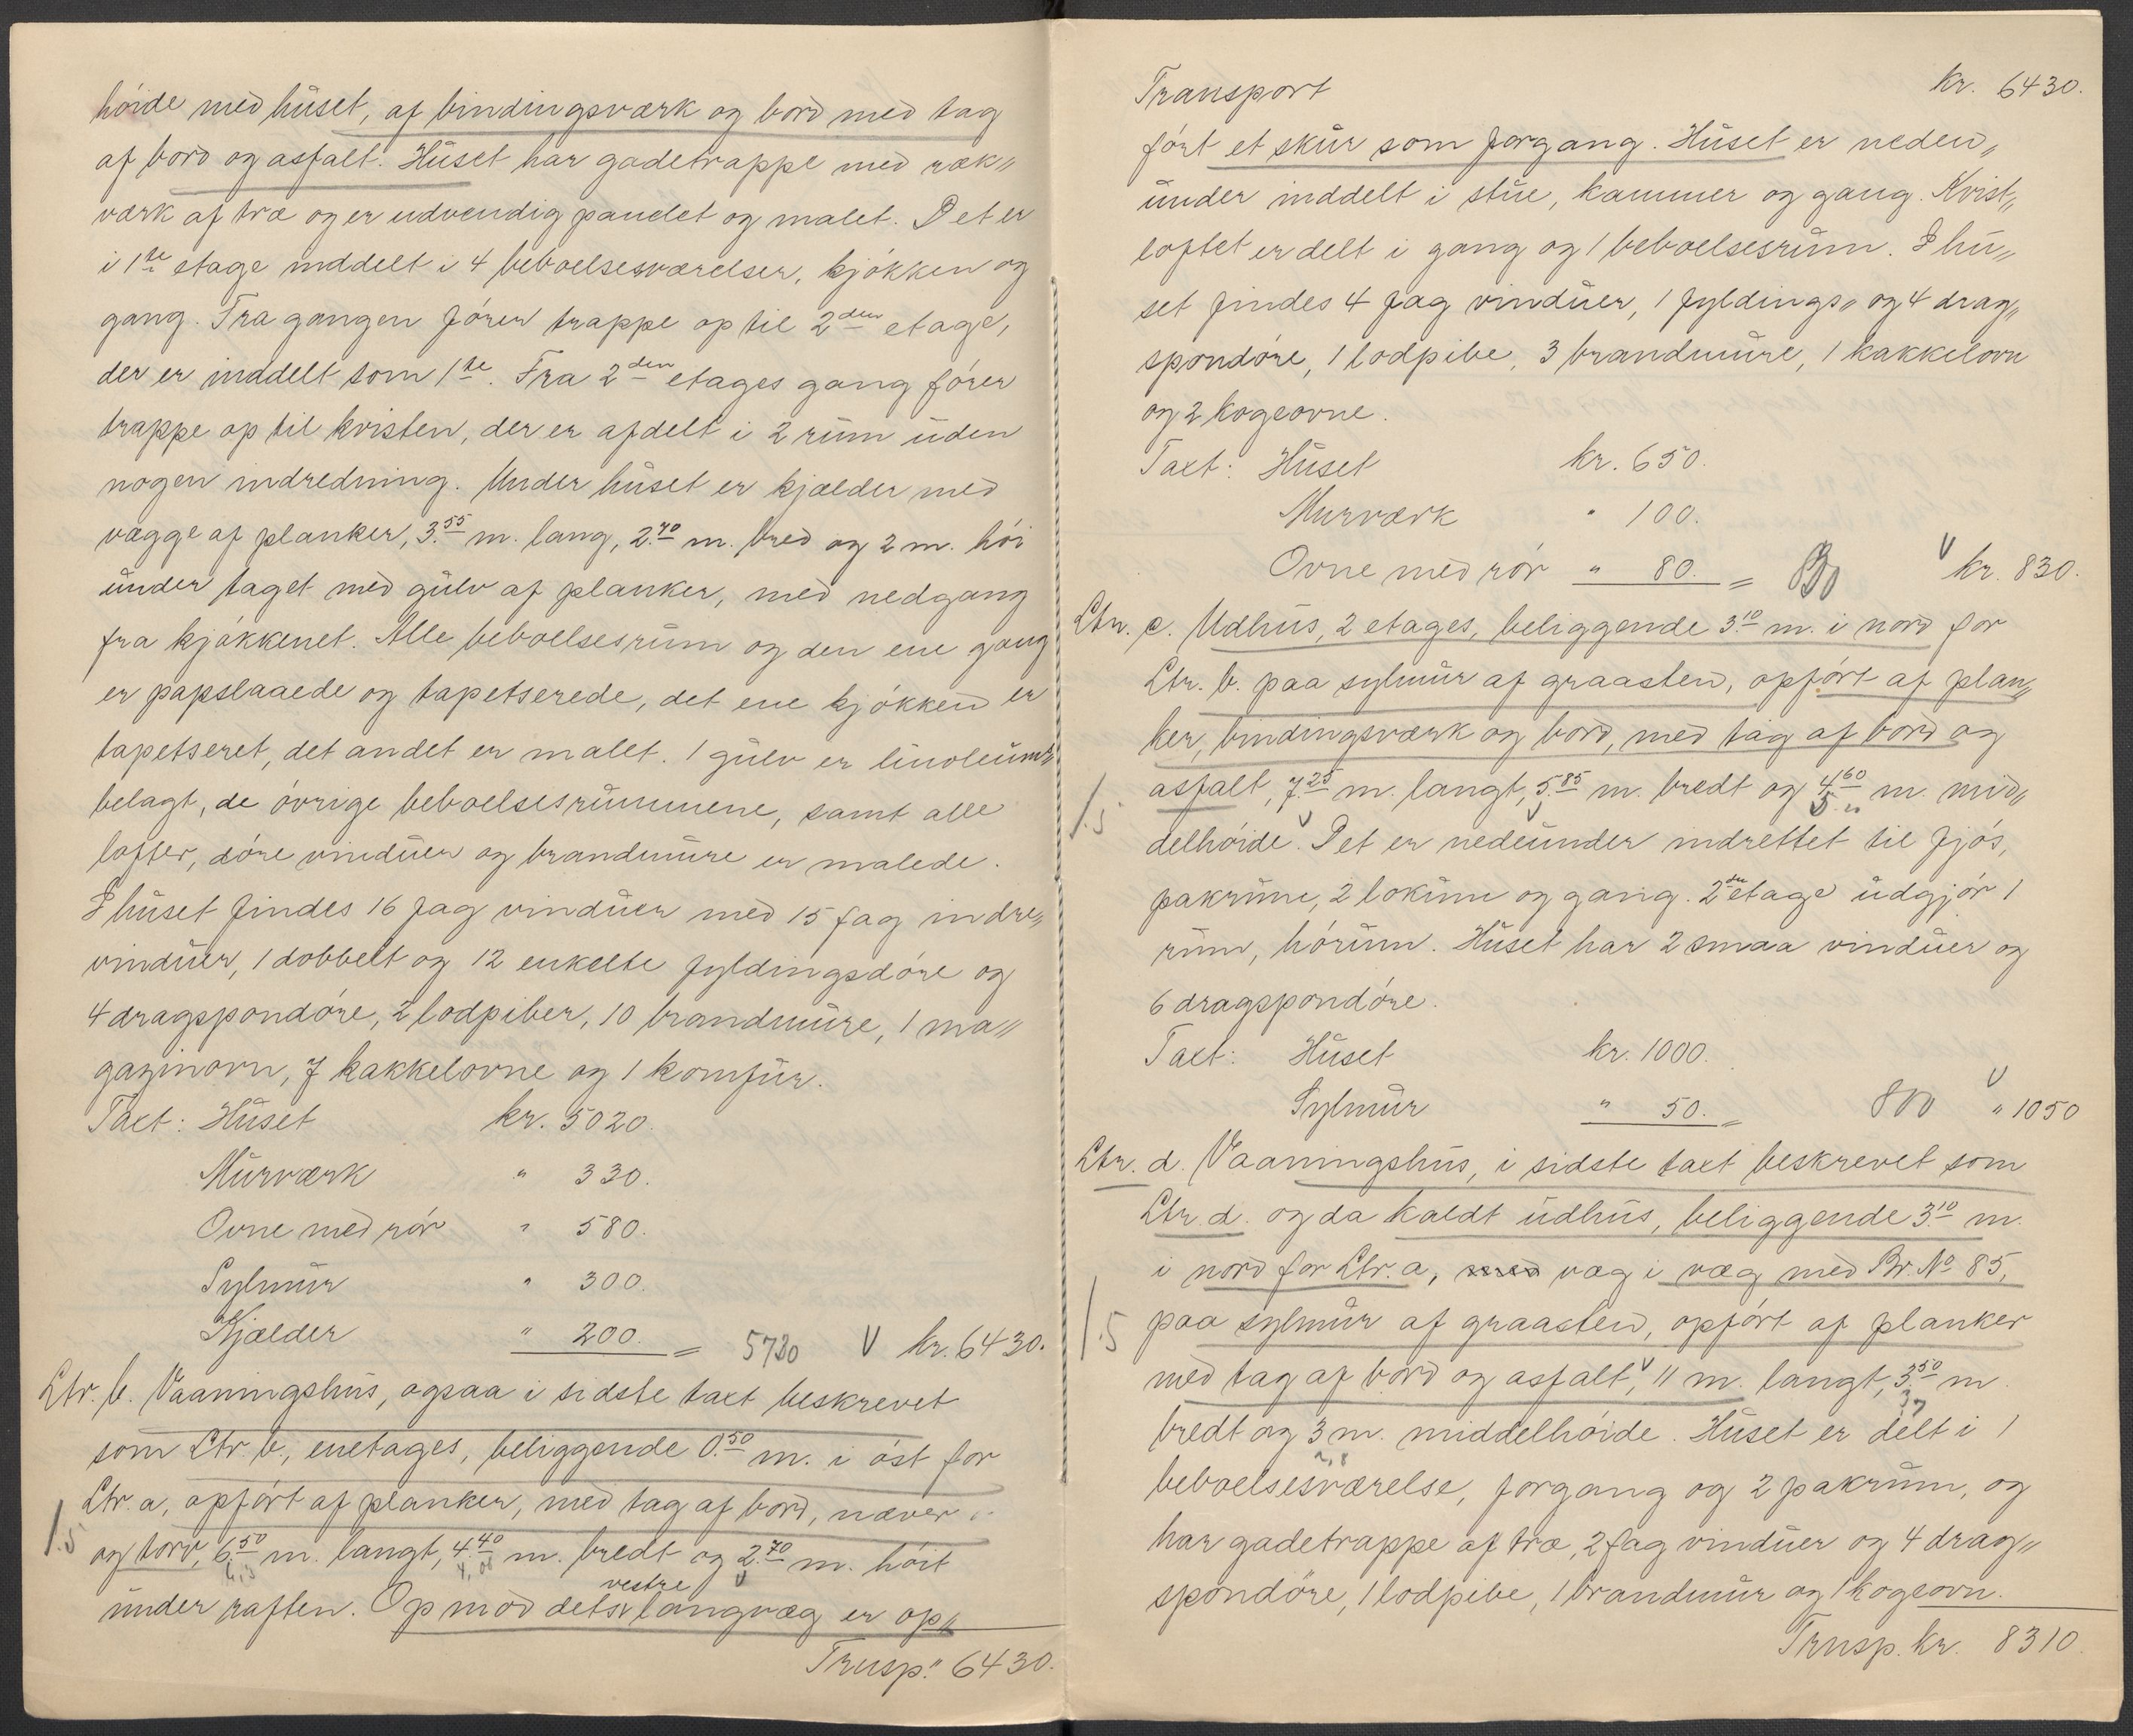 höide med huset, af bindingsværk og bord med tag
af bord og asfalt. Huset har gadetrappe med ræk„
værk af træ og er udvendig panelet og malet. Det er
i 1ste etage inddelt i 4 beboelsesværelser, kjökken og
gang. Fra gangen förer trappe op til 2den etage,
der er inddelt som 1ste. Fra 2den etages gang förer
trappe op til kvisten, der er afdelt i 2 rum uden
nogen indredning. Under huset er kjælder med
vægge af planker, 3.55 m. lang, 2.70 m. bred og 2 m. höi
under taget med gulv af planker, med nedgang
fra kjökkenet. Alle beboelsesrum og den ene gang
er papslaaede og tapetserede, det ene kjökken er
tapetseret, det andet er malet. 1 gulv er linoleums
belagt, de övrige beboelsesrummene, samt alle
lofter, döre vinduer og brandmure er malede.
I huset findes 16 fag vinduer med 15 fag indre„
vinduer, 1 dobbelt og 12 enkelte fyldingsdöre og
4 dragspondöre, 2 lodpiber, 10 brandmure, 1 ma„
gazinovn, 7 kakkelovne og 1 komfur.
Taxt: Huset kr. 5020.
Murværk " 330.
Ovne med rör " 580.
Sylmur " 300.
Kjælder " 200. = 5720 V kr. 6430.
Ltr. b. Vaaningshus, ogsaa i sidste taxt beskrevet
som Ltr. b., enetages, beliggende 0.50 m. i öst for
Ltr. a, opfört af planker, med tag af bord, næver
1.5 og torv, 6.50 m. langt, 4.40 m. bredt og 2.70 m. höit
vestre
under raften. Op mod dets langvæg er op„
Trnsp. " 6430.
Transport kr. 6430.
fört et skur som forgang. Huset er neden„
under inddelt i stue, kammer og gang. Kvist„
loftet er delt i gang og 1 beboelsesrum. I hu„
set findes 4 fag vinduer, 1 fyldings„ og 4 drag„
spondöre, 1 lodpibe, 3 brandmure, 1 kakkelovn
og 2 kogeovne.
Taxt: Huset kr. 650.
Murværk " 100.
Ovne med rör " 80. = V kr. 830.
Ltr. c. Udhus, 2 etages, beliggende 3.10 m. i nord for
Ltr. b. paa sylmur af graasten, opfört af plan„
ker, bindingsværk og bord, med tag af bord og
1.5 asfalt, 7.25 m. langt, 5.85 m. bredt og 4.60 m. mid„
delhöide. Det er nedeunder indrettet til fjös,
pakrum, 2 lokum og gang. 2den etage udgjör 1
rum, hörum. Huset har 2 smaa vinduer og
6 dragspondöre.
Taxt: Huset kr. 1000.
Sylmur " 50. = 800 V " 1050
Ltr. d. Vaaningshus, i sidste taxt beskrevet som
Ltr. d. og da kaldt udhus, beliggende 3.10 m.
i nord for Ltr. a, med væg i væg med Br. No 85,
1.5 paa sylmur af graasten, opfört af planker
med tag af bord og asfalt, 11 m. langt, 3.50 m
3,7
bredt og 3 m. middelhöide. Huset er delt i 1
2,8
beboelsesværelse, forgang og 2 pakrum, og
har gadetrappe af træ, 2 fag vinduer og 4 drag„
spondöre, 1 lodpibe, 1 brandmur og 1 kogeovn.
Trnsp. kr. 8310.